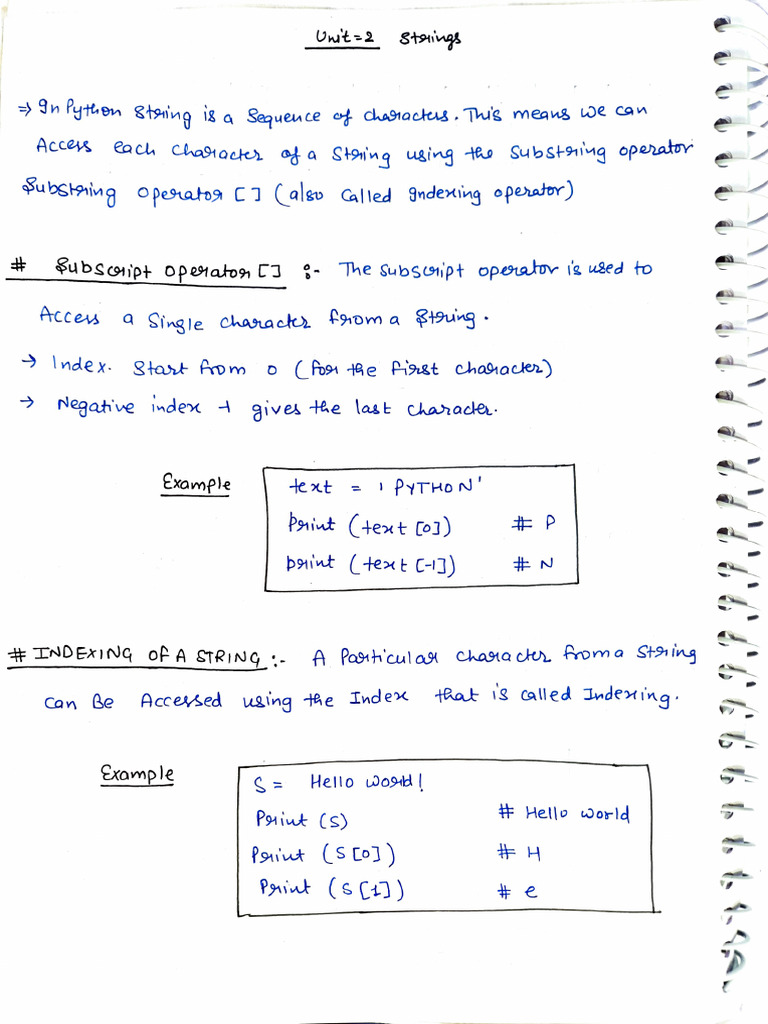 Unit=2 Strings
⇒ In Python String is a Sequence of characters. This means we can
Access each character of a String using the substring operator
Substring operator [] (also called Indexing operator)
# Subscript operator [] :- The subscript operator is used to
Access a Single character from a String.
→ Index. Start from 0 (for the first character)
→ Negative index -1 gives the last character.
Example
text = 'PYTHON'
Print (text [0]) # P
print (text [-1]) # N
# INDEXING OF A STRING :- A Particular character from a String
can Be Accessed using the Index that is called Indexing.
Example
S = Hello world!
Print (S) # Hello world
Print (S[0]) # H
Print (S[1]) # e